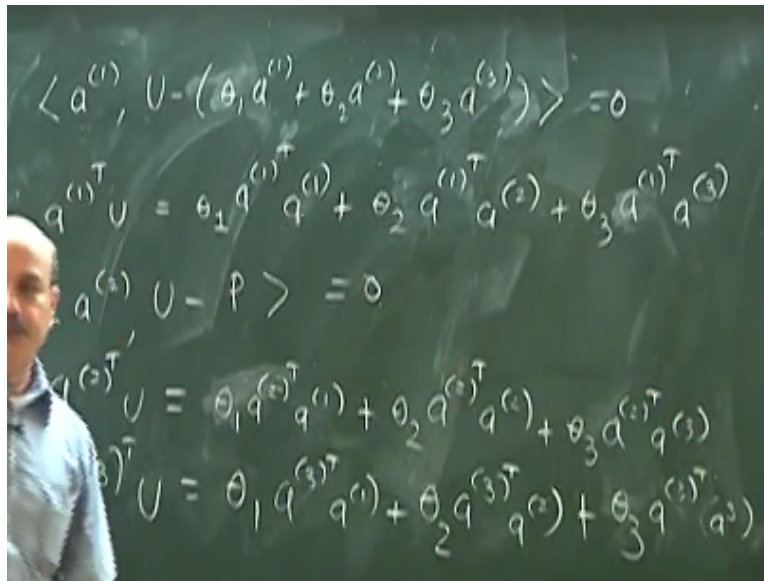 < a⁽¹⁾, U - (θ₁a⁽¹⁾ + θ₂a⁽²⁾ + θ₃a⁽³⁾) > = 0
a⁽¹⁾ᵀ U = θ₁ a⁽¹⁾ᵀ a⁽¹⁾ + θ₂ a⁽¹⁾ᵀ a⁽²⁾ + θ₃ a⁽¹⁾ᵀ a⁽³⁾
a⁽²⁾, U - P > = 0
a⁽²⁾ᵀ U = θ₁ a⁽²⁾ᵀ a⁽¹⁾ + θ₂ a⁽²⁾ᵀ a⁽²⁾ + θ₃ a⁽²⁾ᵀ a⁽³⁾
³⁾ᵀ U = θ₁ a⁽³⁾ᵀ a⁽¹⁾ + θ₂ a⁽³⁾ᵀ a⁽²⁾ + θ₃ a⁽³⁾ᵀ (a³)